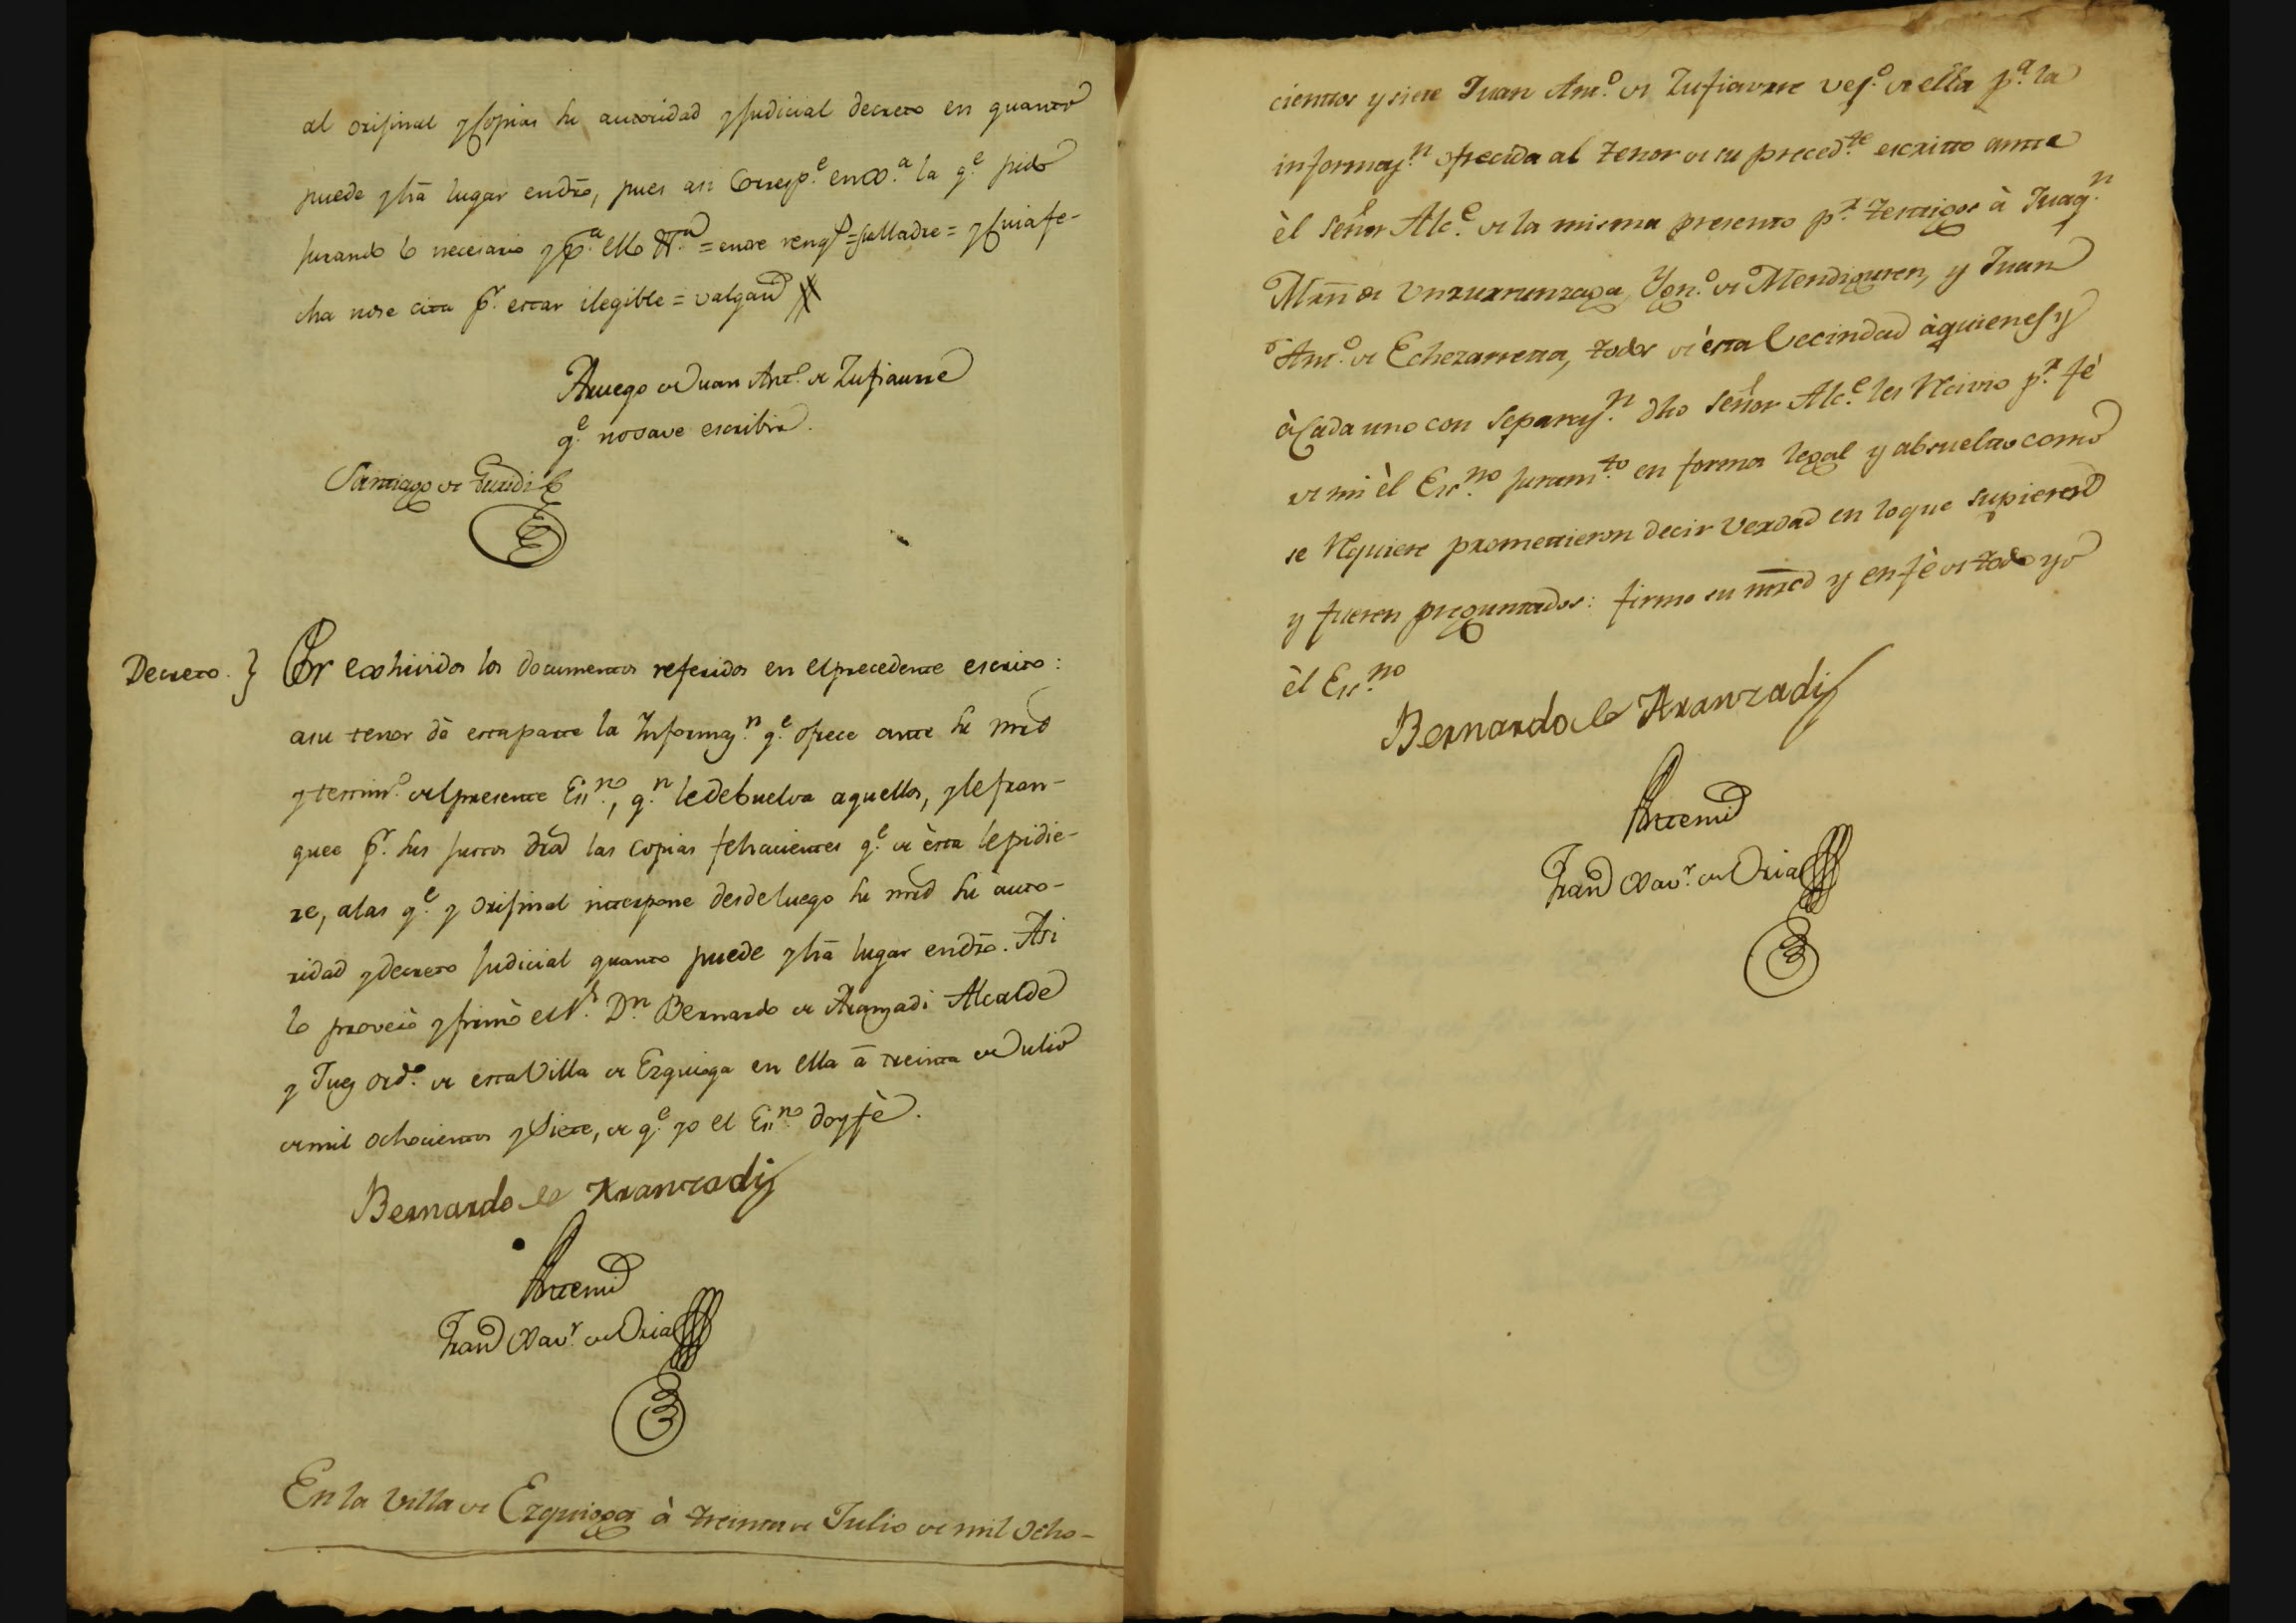 al orijinal y Copias su autoridad y Judicial decreto en quanto
puede y há lugar en dro, pues asi Corresp.e en xa.a la q.e pido
jurando lo necesario y p.a ello &.a = entre reng.s = su Madre = y Cuia fe-
cha no se cita p.r estar ilegible = valgan
A ruego de Juan Ant.o de Zufiaurre
q.e no save escribir.
Santiago de Guridi
Decreto. } Por exhividos los documentos referidos en el precedente escrito:
a su tenor dè esta parte la Informaz.n q.e ofrece ante su mrd
y testim.o del presente Ess.no, q.n le debuelva aquellos, y le fran-
quee p.r sus justos dros las copias fehacientes q.e de èsta le pidie-
re, a las q.e y orijinal interpone desde luego su mrd su auto-
ridad y decreto Judicial quanto puede y há lugar en dro. Asi
lo proveiò y firmò el S.r D.n Bernardo de Aranzadi Alcalde
y Juez ord.o de esta Villa de Ezquioga en ella á treinta de Julio
de mil ochocientos y Siete, de q.e yo el Ess.no doy fè.
Bernardo de Aranzadi
Ante mi
Fran.co Xav.r de Oria
En la Villa de Ezquioga à treinta de Julio de mil ocho-
cientos y siete Juan Ant.o de Zufiaurre vez.o de ella p.a la
informaz.n ofrecida al tenor de su preced.te escritto antte
èl Señor Alc.e de la misma presento p.r testtigos à Juaq.n
Mrn de Unzurrunzaga, Ygn.o de Mendiguren, y Juan
Ant.o de Echezarreta, todos de èsta Vecindad à quienes y
à Cada uno con Separaz.n dho Señor Alc.e les Recivio p.r fè
de mi èl Ess.no Juram.to en forma legal y absueltto como
se Requiere prometieron decir Verdad en lo que supieren
y fueren preguntados: firmo su mrcd y en fè de todo yo
èl Ess.no
Bernardo de Aranzadi
Ante mi
Fran.co Xav.r de Oria